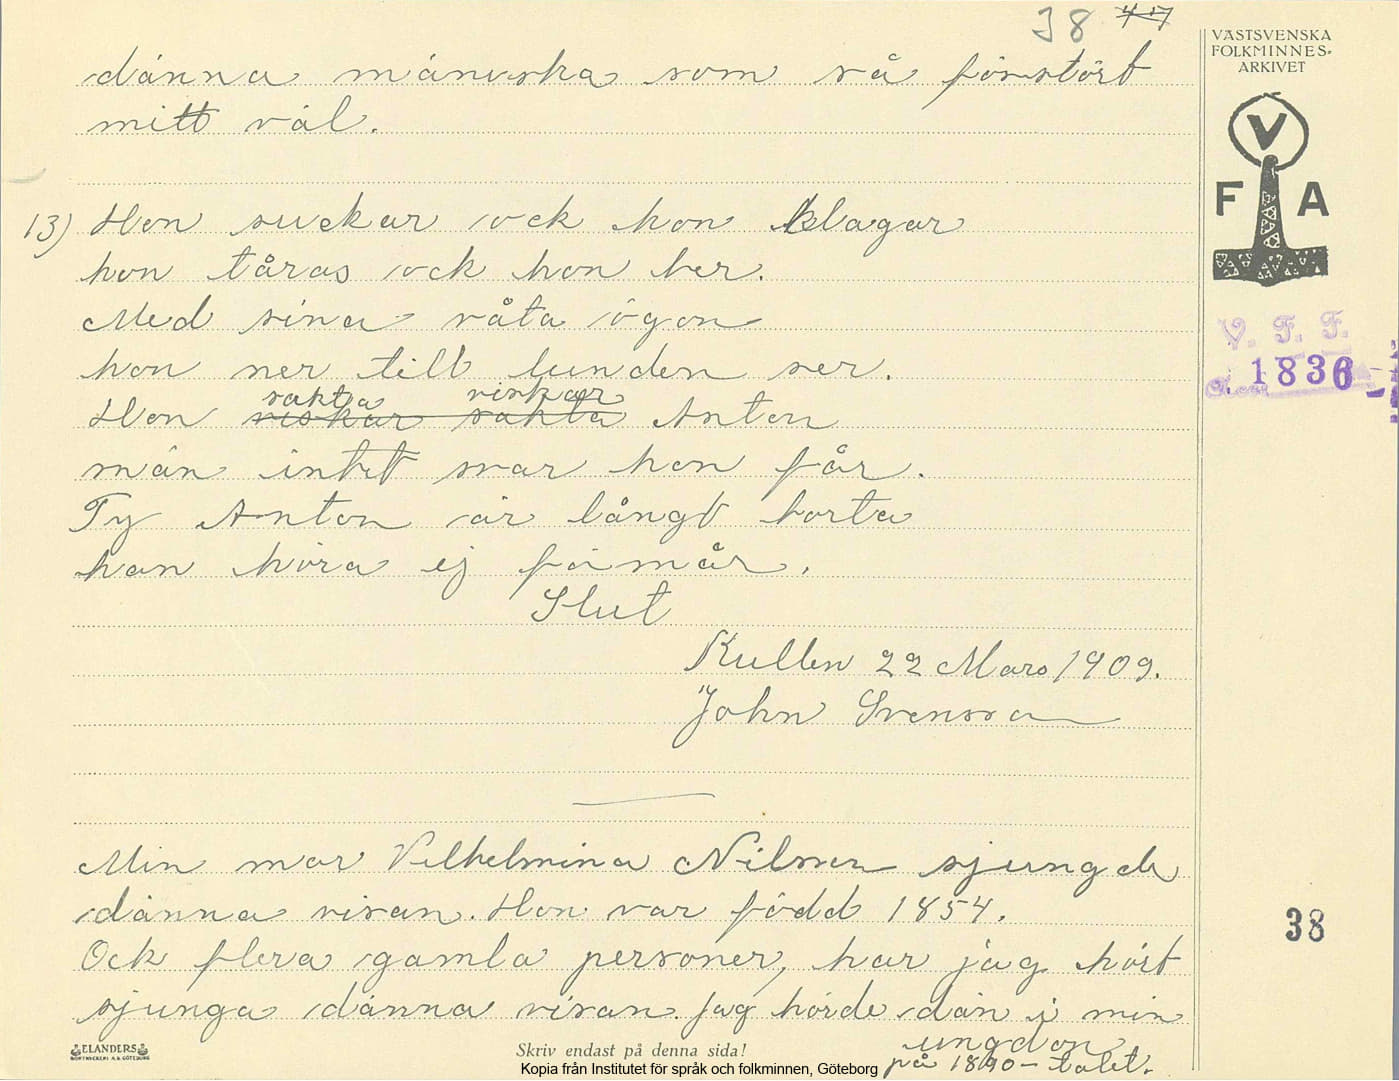 38 47
VÄSTSVENSKA
FOLKMINNES-
ARKIVET
V
F A
V. F. F.
1836
dänna mänvska som så förstört
mitt väl.
13) Hon suckar ock hon klagar
hon tåras ock hon ber.
Med sina våta ögon
hon ner till lunden ser.
sakta viskar
Hon viskar sakta Anton
män intet svar hon får.
Ty Anton är långt borta
han höra ej förmår.
Slut
Kullen 22 Mars 1909.
John Svensson
Min mor Vilhelmina Nilsson sjungde
dänna visan. Hon var född 1854.
Ock flera gamla personer, har jag hört
sjunga dänna visan. Jag hörde dän i min
ungdom
på 1890-talet.
38
ELANDERS
BOKTRYCKERI A.B. GÖTEBORG
Skriv endast på denna sida!
Kopia från Institutet för språk och folkminnen, Göteborg